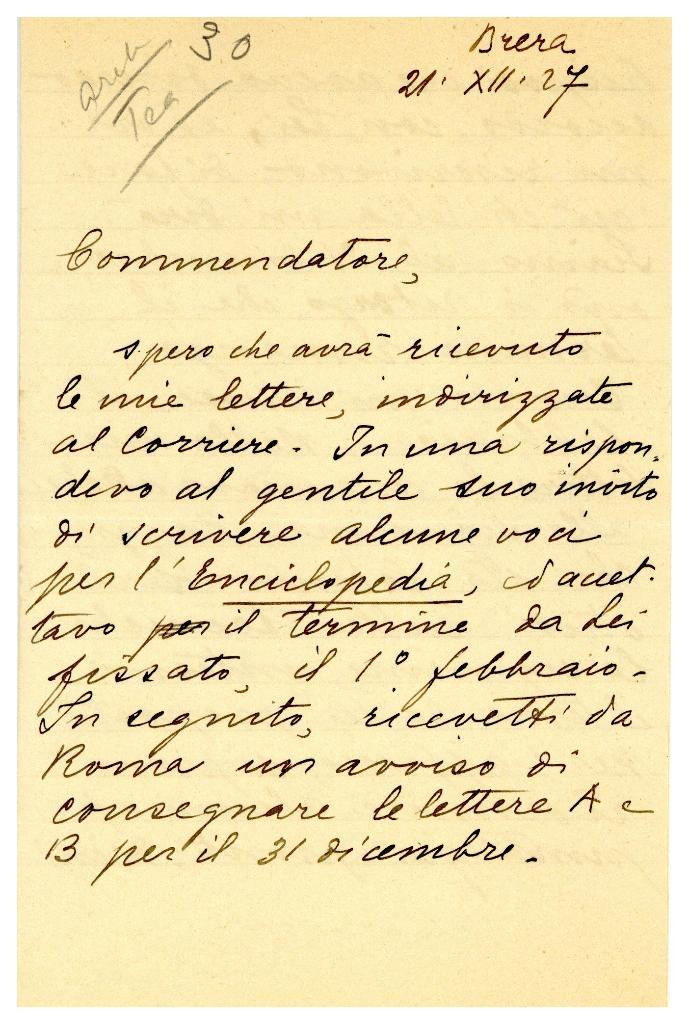 30
Brera
21. XII. 27
Commendatore,
spero che avrà ricevuto
le mie lettere, indirizzate
al Corriere. In una rispon-
devo al gentile suo invito
di scrivere alcune voci
per l'Enciclopedia, ed accet-
tavo per il termine da Lei
fissato, il 1º febbraio.
In seguito, ricevetti da
Roma un avviso di
consegnare le lettere A e
B per il 31 dicembre.